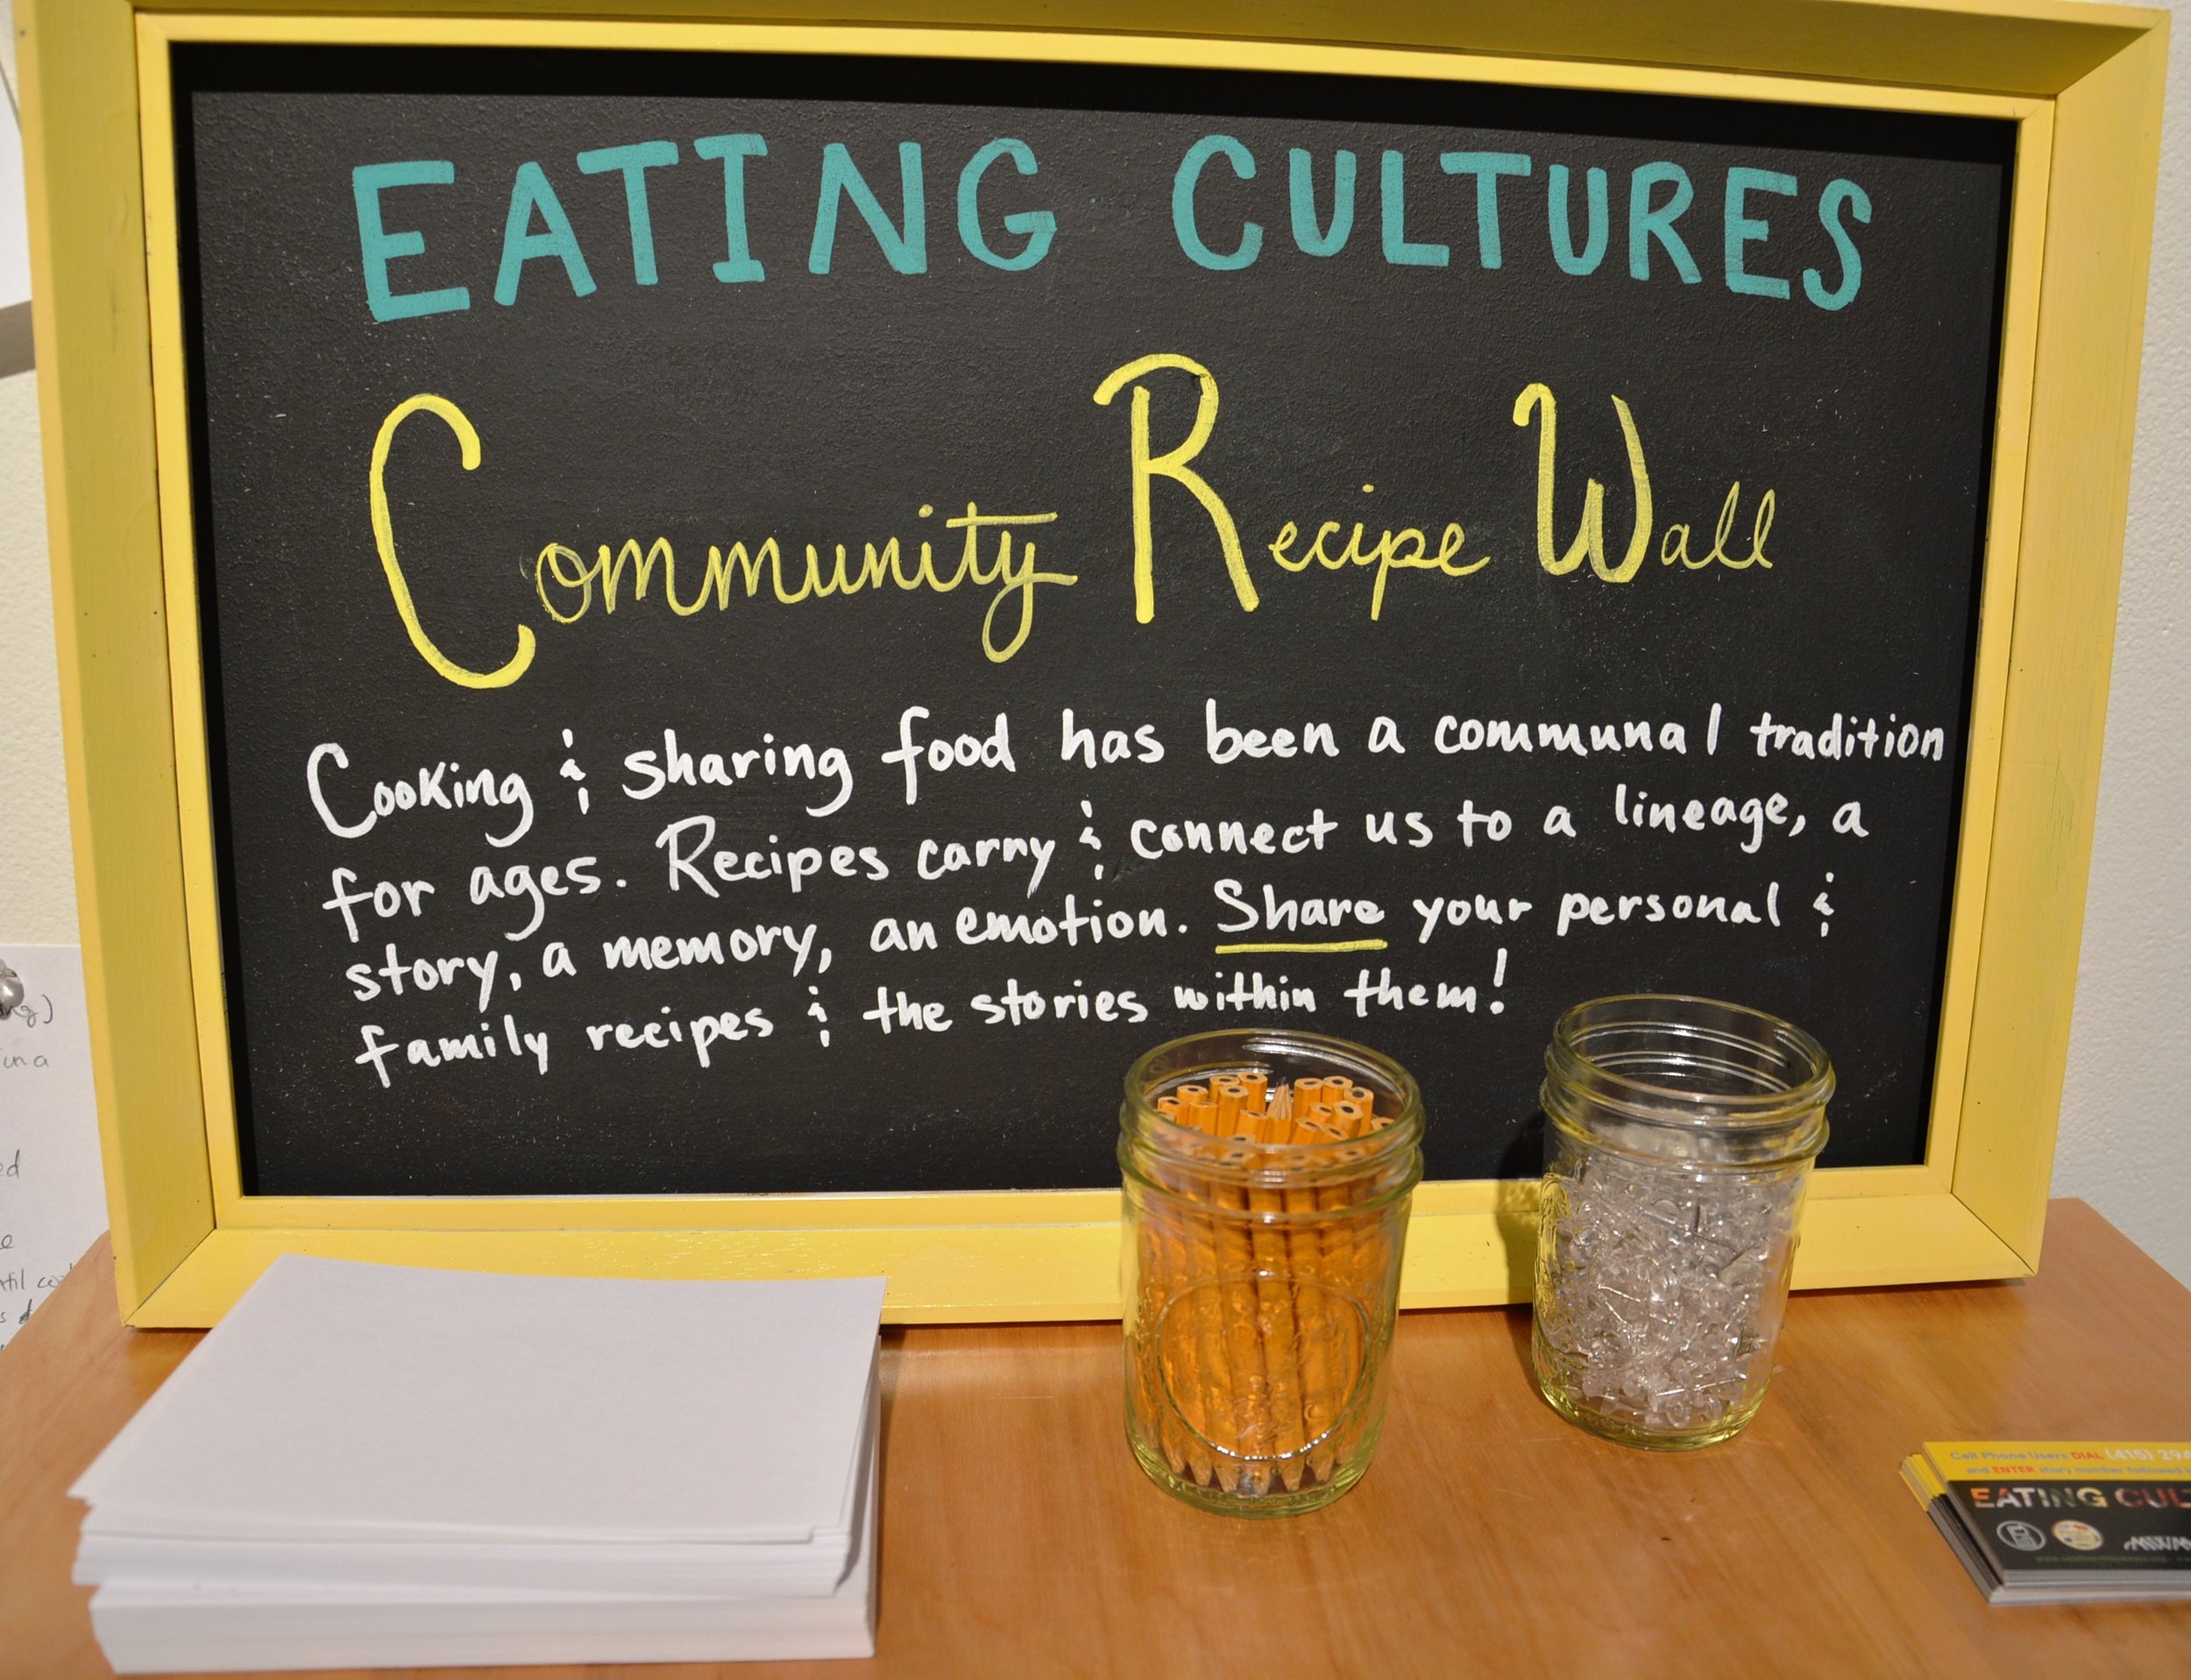 EATING CULTURES
Community Recipe Wall
Cooking & sharing food has been a communal tradition
for ages. Recipes carry & connect us to a lineage, a
story, a memory, an emotion. Share your personal &
family recipes & the stories within them!
Cell Phone Users DIAL (415) 294
and ENTER story number followed
EATING CUL
in a
ed